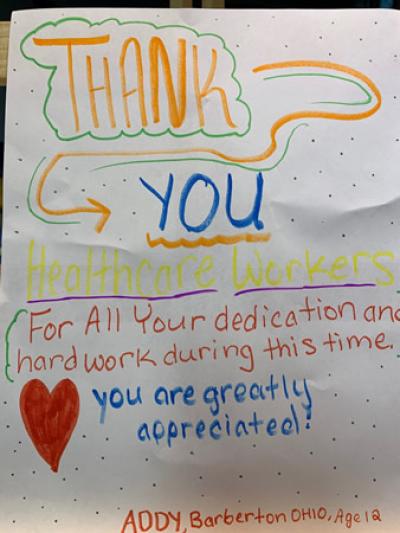 THANK
YOU
Healthcare Workers
For All Your dedication and
hard work during this time.
you are greatly
appreciated!
ADDY, Barberton OHIO, Age 12